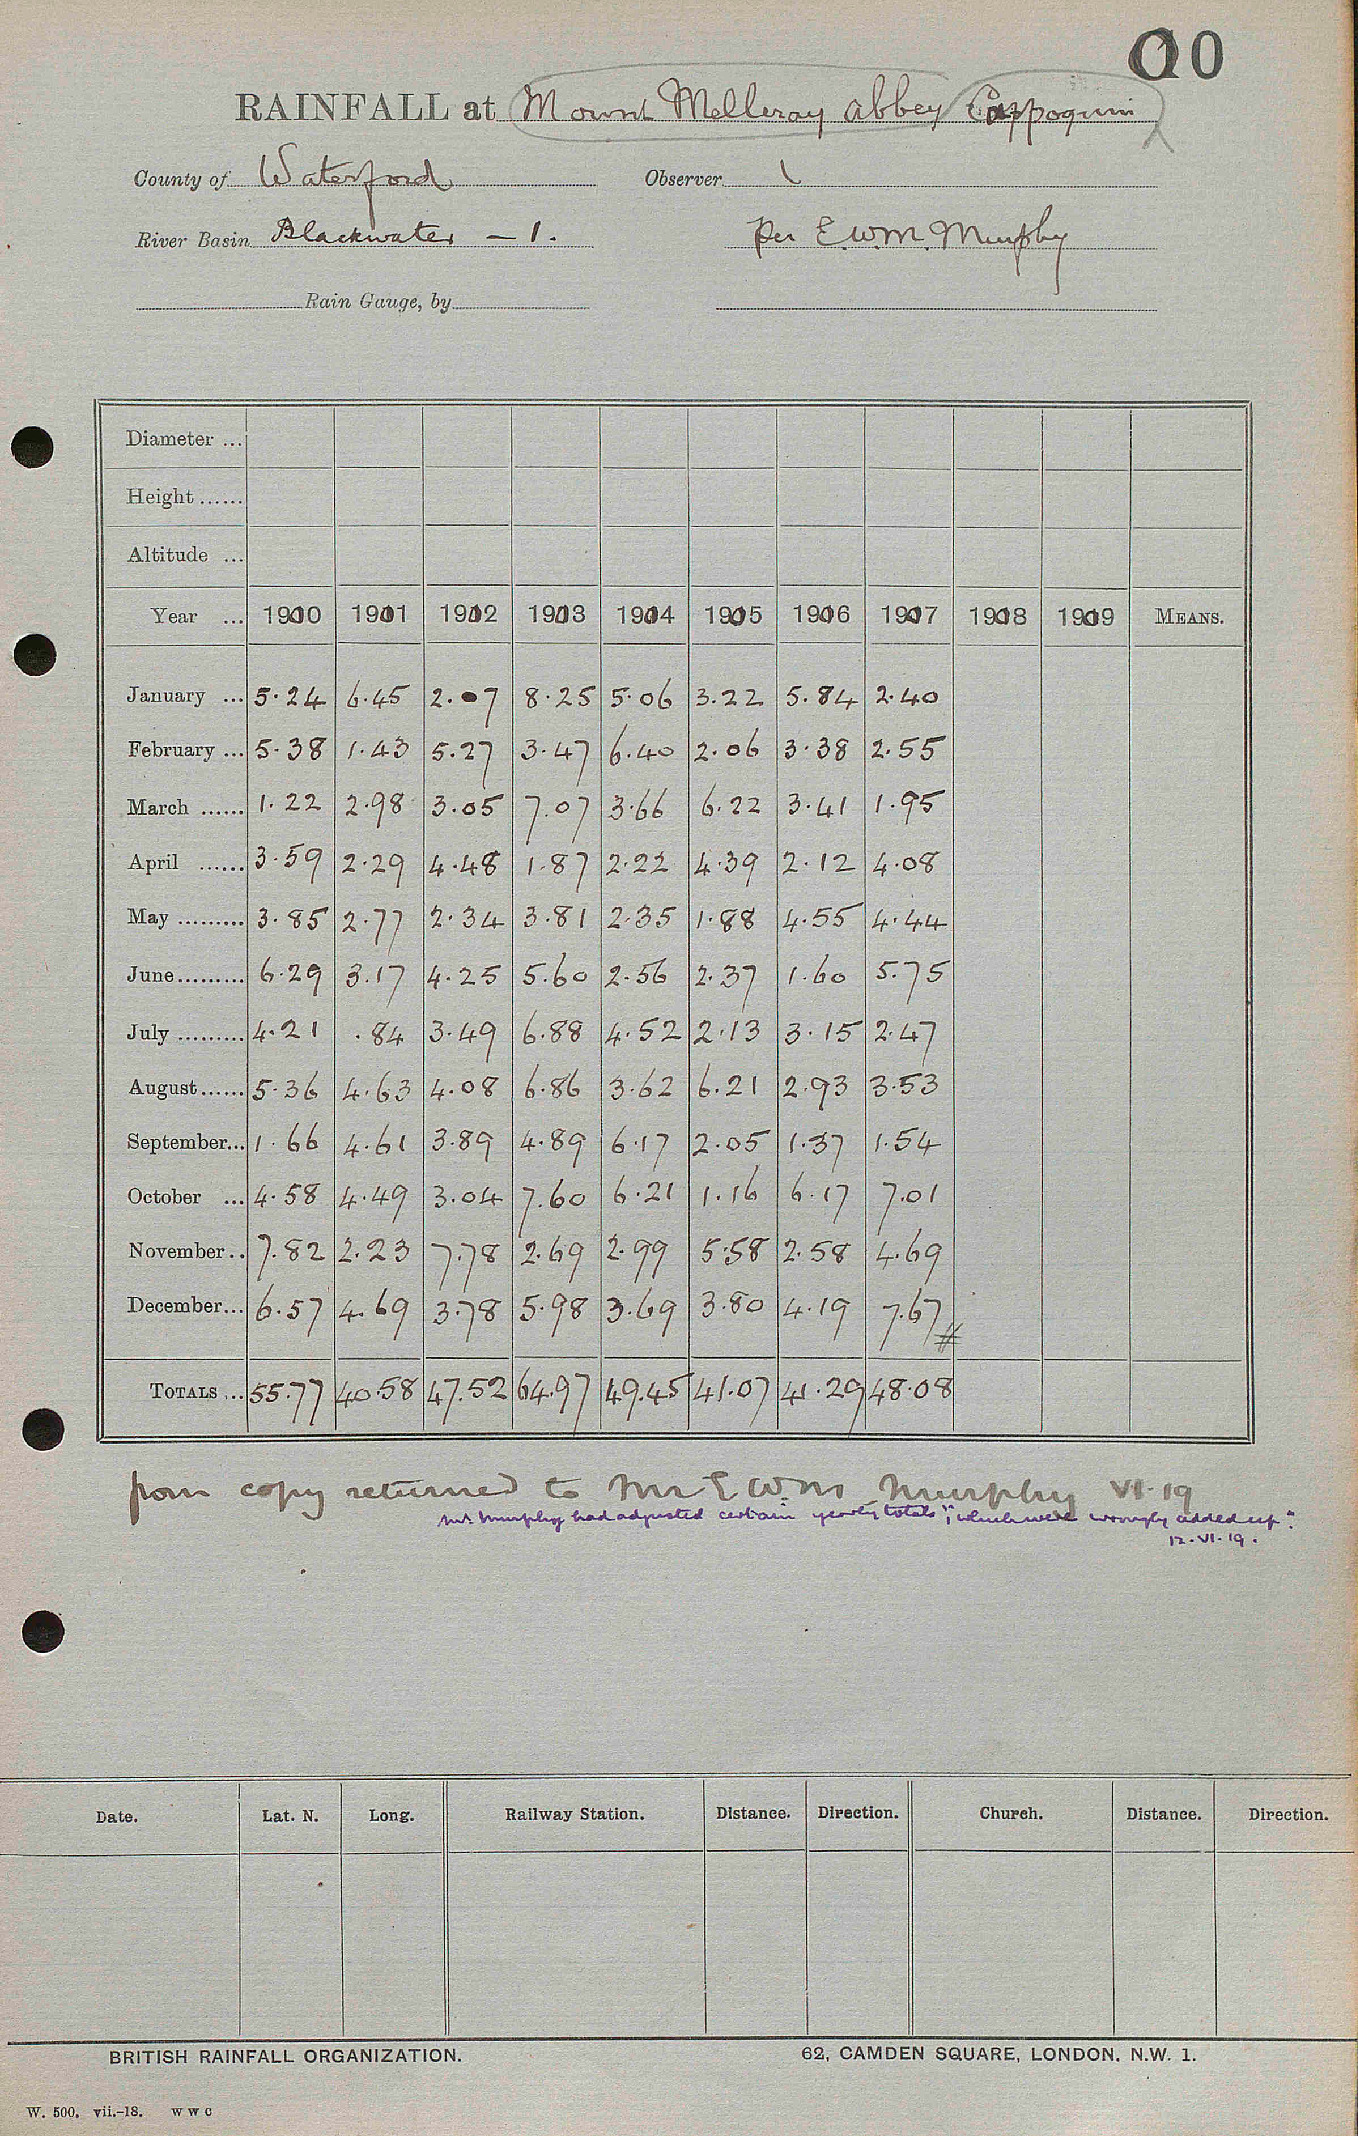 00
RAINFALL at Mount Melleray abbey Cappoquin
County of Waterford Observer
River Basin Blackwater - 1. per E.W.M. Murphy
Rain Gauge, by
Diameter ...
Height ......
Altitude ...
Year ... 1900 1901 1902 1903 1904 1905 1906 1907 1908 1909 MEANS.
January ... 5.24 6.45 2.07 8.25 5.06 3.22 5.84 2.40
February ... 5.38 1.43 5.27 3.47 6.40 2.06 3.38 2.55
March ...... 1.22 2.98 3.05 7.07 3.66 6.22 3.41 1.95
April ...... 3.59 2.29 4.48 1.87 2.22 4.39 2.12 4.08
May ......... 3.85 2.77 2.34 3.81 2.35 1.88 4.55 4.44
June......... 6.29 3.17 4.25 5.60 2.56 2.37 1.60 5.75
July ......... 4.21 .84 3.49 6.88 4.52 2.13 3.15 2.47
August...... 5.36 4.63 4.08 6.86 3.62 6.21 2.93 3.53
September... 1.66 4.61 3.89 4.89 6.17 2.05 1.37 1.54
October ... 4.58 4.49 3.04 7.60 6.21 1.16 6.17 7.01
November.. 7.82 2.23 7.78 2.69 2.99 5.58 2.58 4.69
December... 6.57 4.69 3.78 5.98 3.69 3.80 4.19 7.67 #
TOTALS ... 55.77 40.58 47.52 64.97 49.45 41.07 41.29 48.08
from copy returned to Mr E W M Murphy VI.19
Mr. Murphy had adjusted certain yearly totals "which were wrongly added up".
12.VI.19.
Date. Lat. N. Long. Railway Station. Distance. Direction. Church. Distance. Direction.
BRITISH RAINFALL ORGANIZATION. 62, CAMDEN SQUARE, LONDON. N.W. 1.
W. 500. vii.-18. W W C